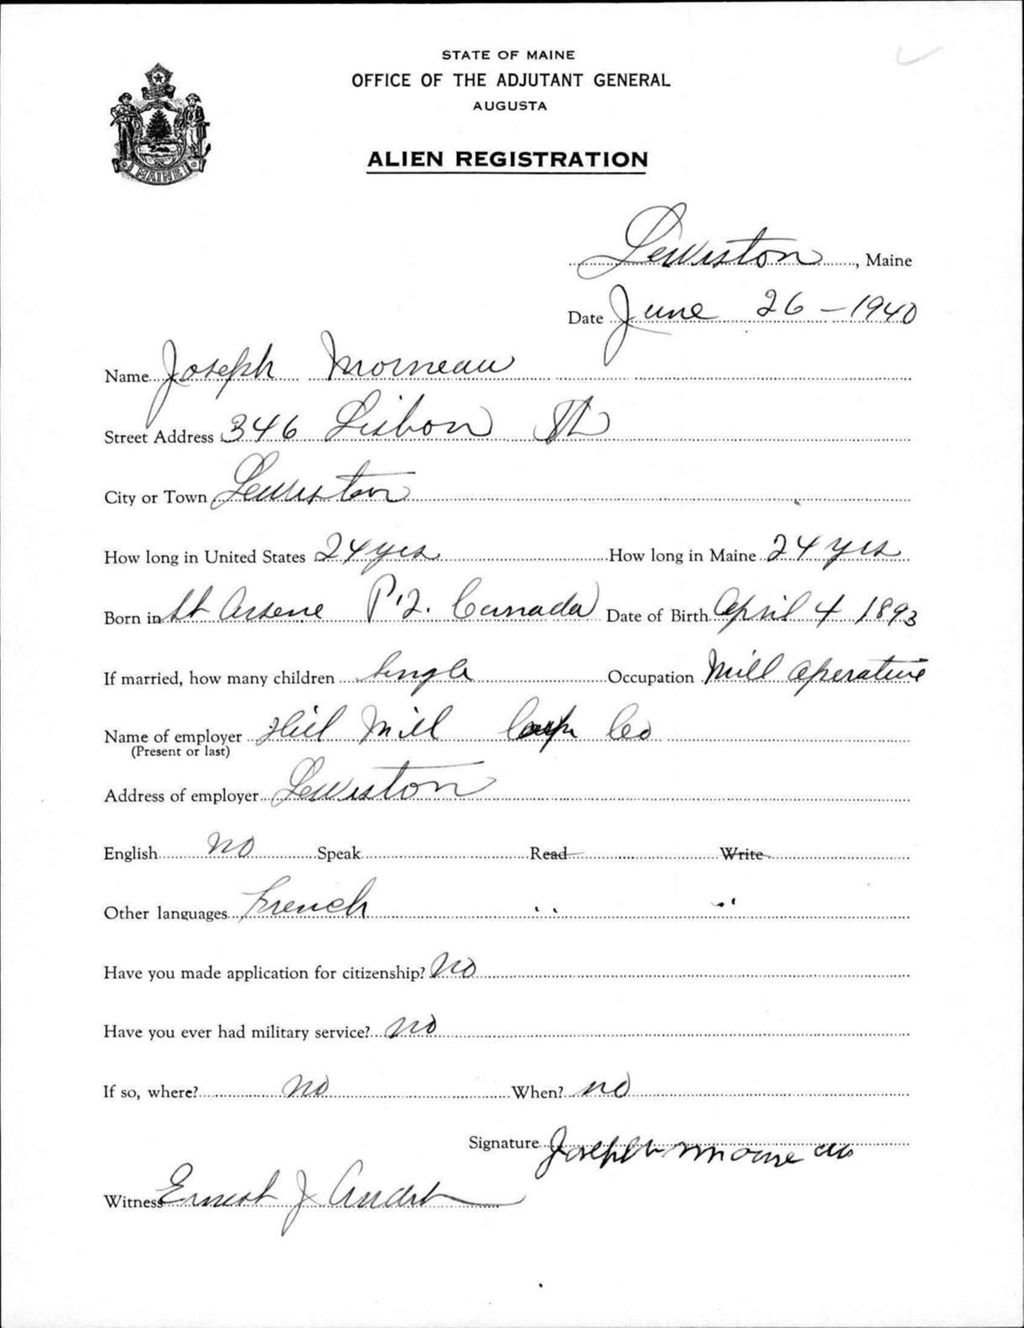 STATE OF MAINE
OFFICE OF THE ADJUTANT GENERAL
AUGUSTA
MAINE
ALIEN REGISTRATION
Lewiston, Maine
Date June 26 - 1940
Name Joseph Morneau
Street Address 346 Lisbon St
City or Town Lewiston
How long in United States 24 yrs How long in Maine 24 yrs
Born in St Arsene P.Q. Canada Date of Birth April 4 1893
If married, how many children Single Occupation Mill Operative
Name of employer Hill Mill Co
(Present or last)
Address of employer Lewiston
English No Speak Read Write
Other languages French " "
Have you made application for citizenship? No
Have you ever had military service? No
If so, where? No When? no
Signature Joseph Morneau
Witness Ernest J